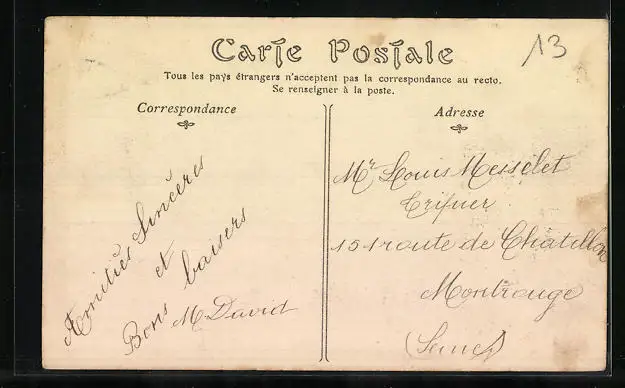 13
Carte Postale
Tous les pays étrangers n'acceptent pas la correspondance au recto.
Se renseigner à la poste.
Correspondance
Amitiés Sincères
et
Bons baisers
M David
Adresse
Mr Louis Messelet
Tripier
151 route de Chatillon
Montrouge
(Seine)